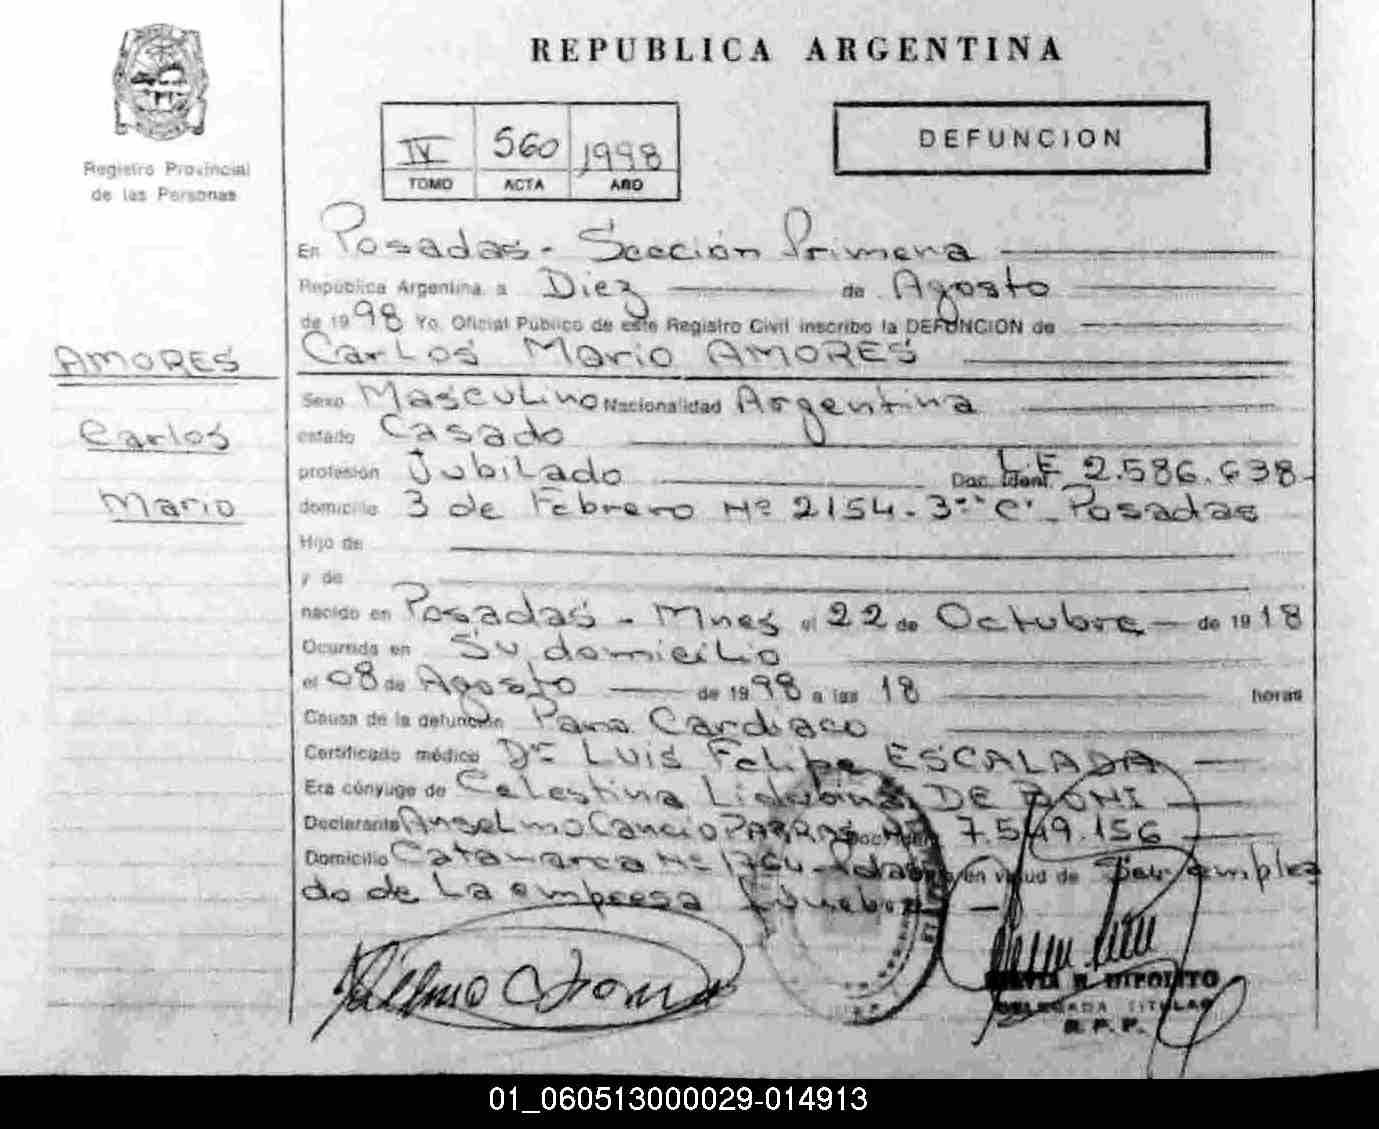 REPUBLICA ARGENTINA
Registro Provincial
de las Personas
IV 560 1998
TOMO ACTA AÑO
DEFUNCION
En Posadas - Sección Primera
República Argentina a Diez de Agosto
de 1998 Yo, Oficial Público de este Registro Civil inscribo la DEFUNCION de
AMORES
Carlos
Mario
Carlos Mario AMORES
Sexo Masculino Nacionalidad Argentina
estado Casado
profesión Jubilado Doc. Ident. L.E 2.586.638
domicilio 3 de Febrero Nº 2154 - 3º "C" - Posadas
Hijo de
y de
nacido en Posadas - Mnes el 22 de Octubre de 1918
Ocurrida en Su domicilio
el 08 de Agosto de 1998 a las 18 horas
Causa de la defunción Paro Cardiaco
Certificado médico Dr Luis Felipe ESCALADA
Era cónyuge de Celestina DE BONI
Declarante Anselmo Cancio PARRAS 7.549.156
Domicilio Catamarca Nº 1764 - en virtud de Ser emplea
do de La empresa Fúnebre
HIPOLITO
DELEGADA TITULAR
R. P. P.
01_060513000029-014913